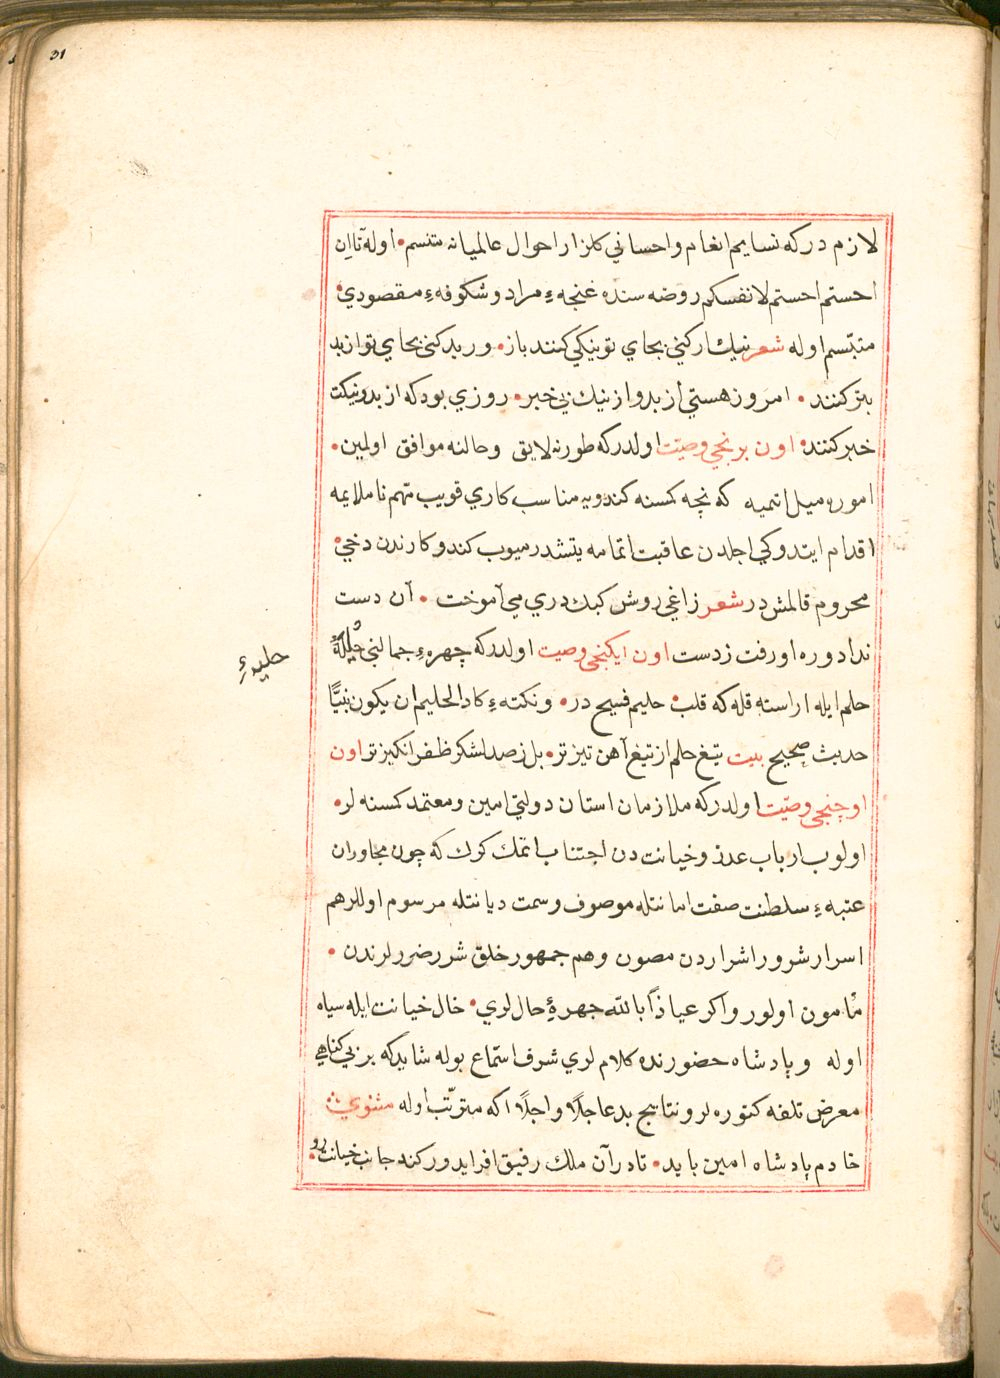 31
لازم دركه نسايم انعام واحساني كلزار احوال عالميانه متنسم • اوله تا ان
احسنتم احسنتم لانفسكم روضه سنده غنجهء مراد وشكوفهء مقصودي •
متبسم اوله شعر نيك ار كني بجاي تو نيكي كنند باز • ور بد كني بجاي تو از بد
بتر كنند • امروز هستي از بد واز نيك بي خبر • روزي بود كه از بد ونيكت
خبر كنند • اون برنجي وصيت اولدركه طورنه لايق وحالنه موافق اولمين •
اموره ميل اتميه كه نچه كمسنه كندويه مناسب كاري قويب مهم ناملايمه
اقدام ايتدوكي اجلدن عاقبت اتمامه يتشدرميوب كندو كارندن دخي •
محروم قالمش در شعر زاغي روش كبك دري مي آموخت • آن دست
نداد وره او رفت زدست اون ايكنجي وصيت اولدركه چهرهء جمالني حليلهء
حليهء
حلم ايله اراسته قله كه قلب حليم فسيح در • ونكتهء كاد الحليم ان يكون نبيًّا
حديث صحيح بيت تيغ حلم از تيغ آهن تيزتر • بل زصد لشكر ظفر انكيزتر اون
اوچنجي وصيت اولدركه ملازمان استان دولتي امين ومعتمد كمسنه لر •
اولوب ارباب عدر وخيانت دن اجتناب اتمك كرك كه چون مجاوران
عتبهء سلطنت صفت امانتله موصوف وسمت ديانتله مرسوم اوللر هم
اسرار شرور اشراردن مصون وهم جمهور خلق شرر ضررلرندن •
مأمون اولور واكر عياذاً بالله جهرهٔ حاللري • خال خيانت ايله سياه
اوله وپادشاه حضورنده كلاملري شرف استماع بوله شايدكه بر بي كناهي
معرض تلفه كتوره لر ونتايج بد عاجلًا واجلًا اكه مترتّب اوله مثنوي
خادم پادشاه امين بايد • تا درآن ملك رفيق افزايد ور كند جانب خيانت رو •